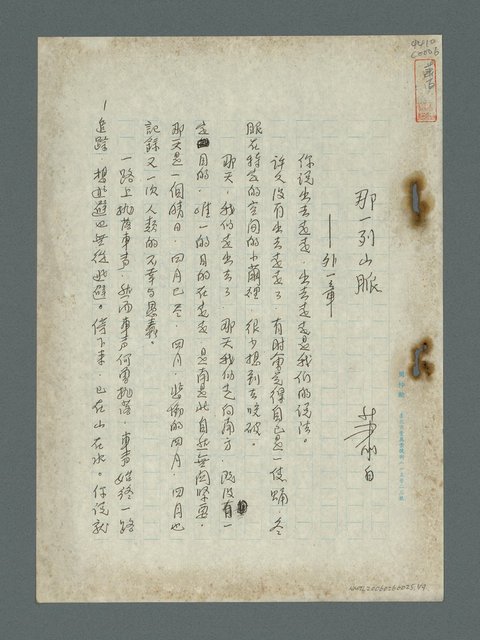 那一列山脈
——外一章
蕭白
你說出去走走，出去走走是我們的說法。
許久沒有出去走走了，有時會覺得自己是一隻蛹，冬
眠在特定的空間的小繭裡，很少想到去咬破。
那天，我們走出去了，那天我們走向南方，既沒有一
定目的，唯一的目的在走走，是南是北自然無關緊要。
那天是一個晴日，四月已冬，四月，悲慟的四月，四月也
記錄又一次人類的不幸與愚蠢。
一路上拋落車聲，然而車聲何曾拋落，車聲始終一路
追蹤，想逃避也無從逃避。停下來，已在山在水。你說就
NMTL20060260025